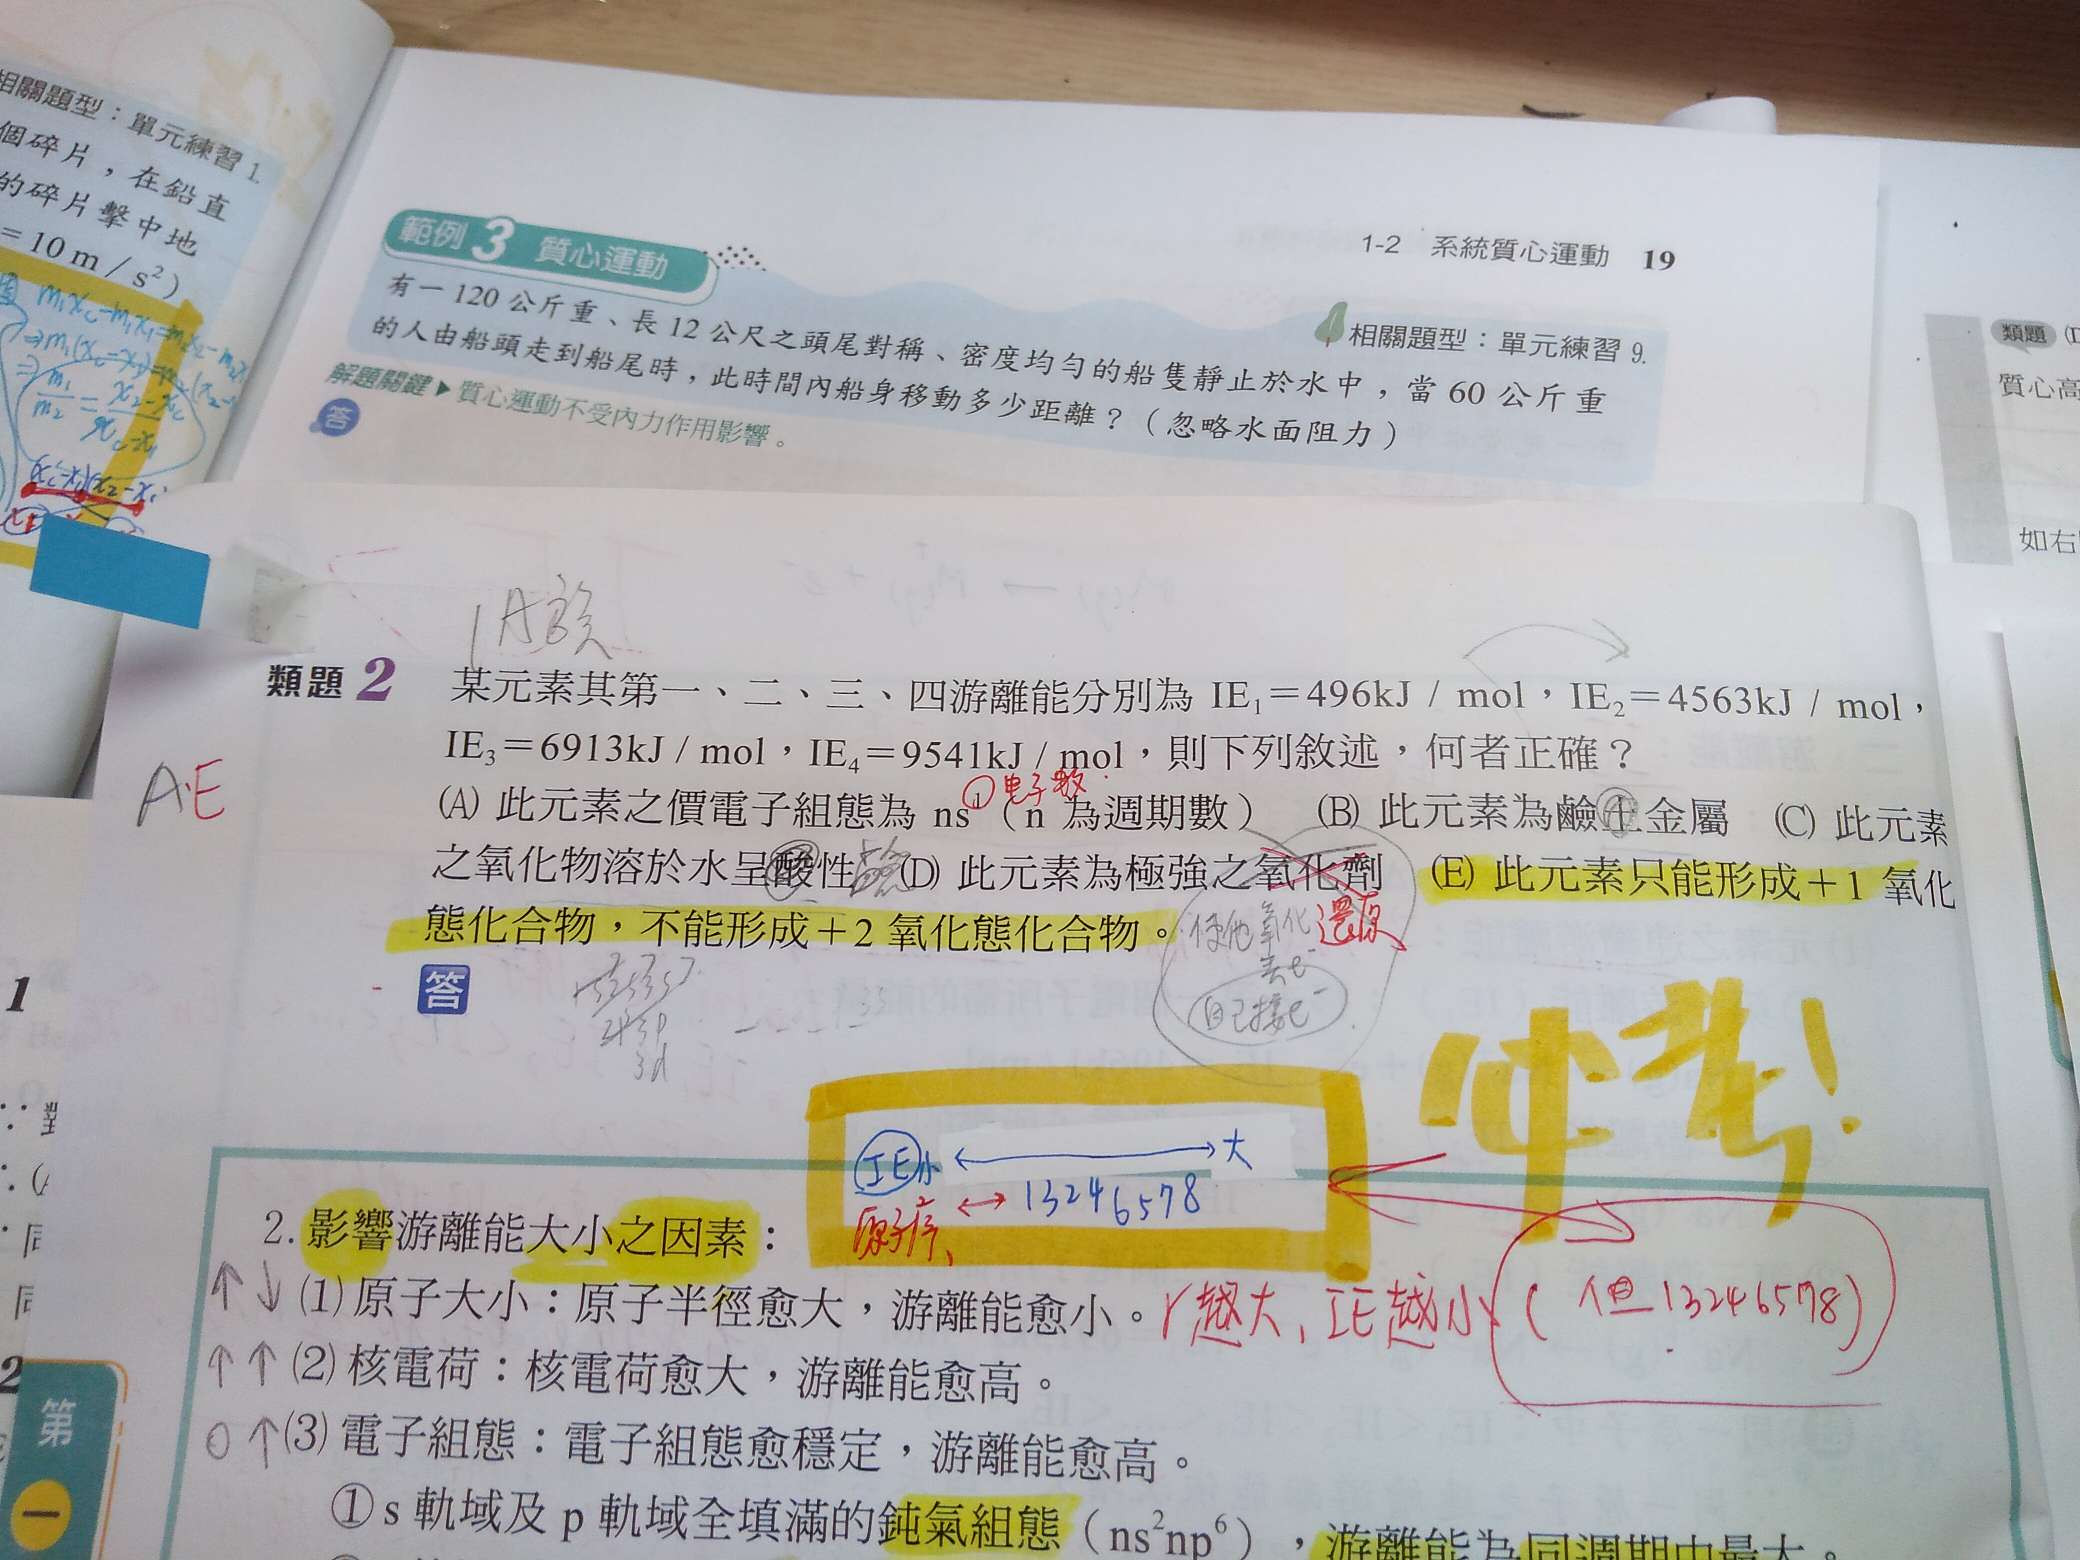 相關題型：單元練習 1.
個碎片，在鉛直
的碎片擊中地
= 10 m / s²)
1-2 系統質心運動 19
範例 3 質心運動
相關題型：單元練習 9.
有一 120 公斤重、長 12 公尺之頭尾對稱、密度均勻的船隻靜止於水中，當 60 公斤重
的人由船頭走到船尾時，此時間內船身移動多少距離？（忽略水面阻力）
解題關鍵▶質心運動不受內力作用影響。
答
類題
質心高
如右
1A族
類題 2 某元素其第一、二、三、四游離能分別為 IE₁＝496kJ / mol，IE₂＝4563kJ / mol，
IE₃＝6913kJ / mol，IE₄＝9541kJ / mol，則下列敘述，何者正確？
A.E
①电子數
(A) 此元素之價電子組態為 ns¹（n 為週期數） (B) 此元素為鹼土金屬 (C) 此元素
之氧化物溶於水呈酸性 鹼 (D) 此元素為極強之氧化劑 (E) 此元素只能形成＋1 氧化
態化合物，不能形成＋2 氧化態化合物。
使他氧化 還原
去e⁻
自己接e⁻
答
3d
必考！
IE小 ←→ 大
原子序 ↔ 13246578
2. 影響游離能大小之因素：
↑↓ (1) 原子大小：原子半徑愈大，游離能愈小。r越大，IE越小 (但13246578)
↑↑ (2) 核電荷：核電荷愈大，游離能愈高。
0↑ (3) 電子組態：電子組態愈穩定，游離能愈高。
① s 軌域及 p 軌域全填滿的鈍氣組態（ns²np⁶），游離能為同週期中最大。
1
2
第
一